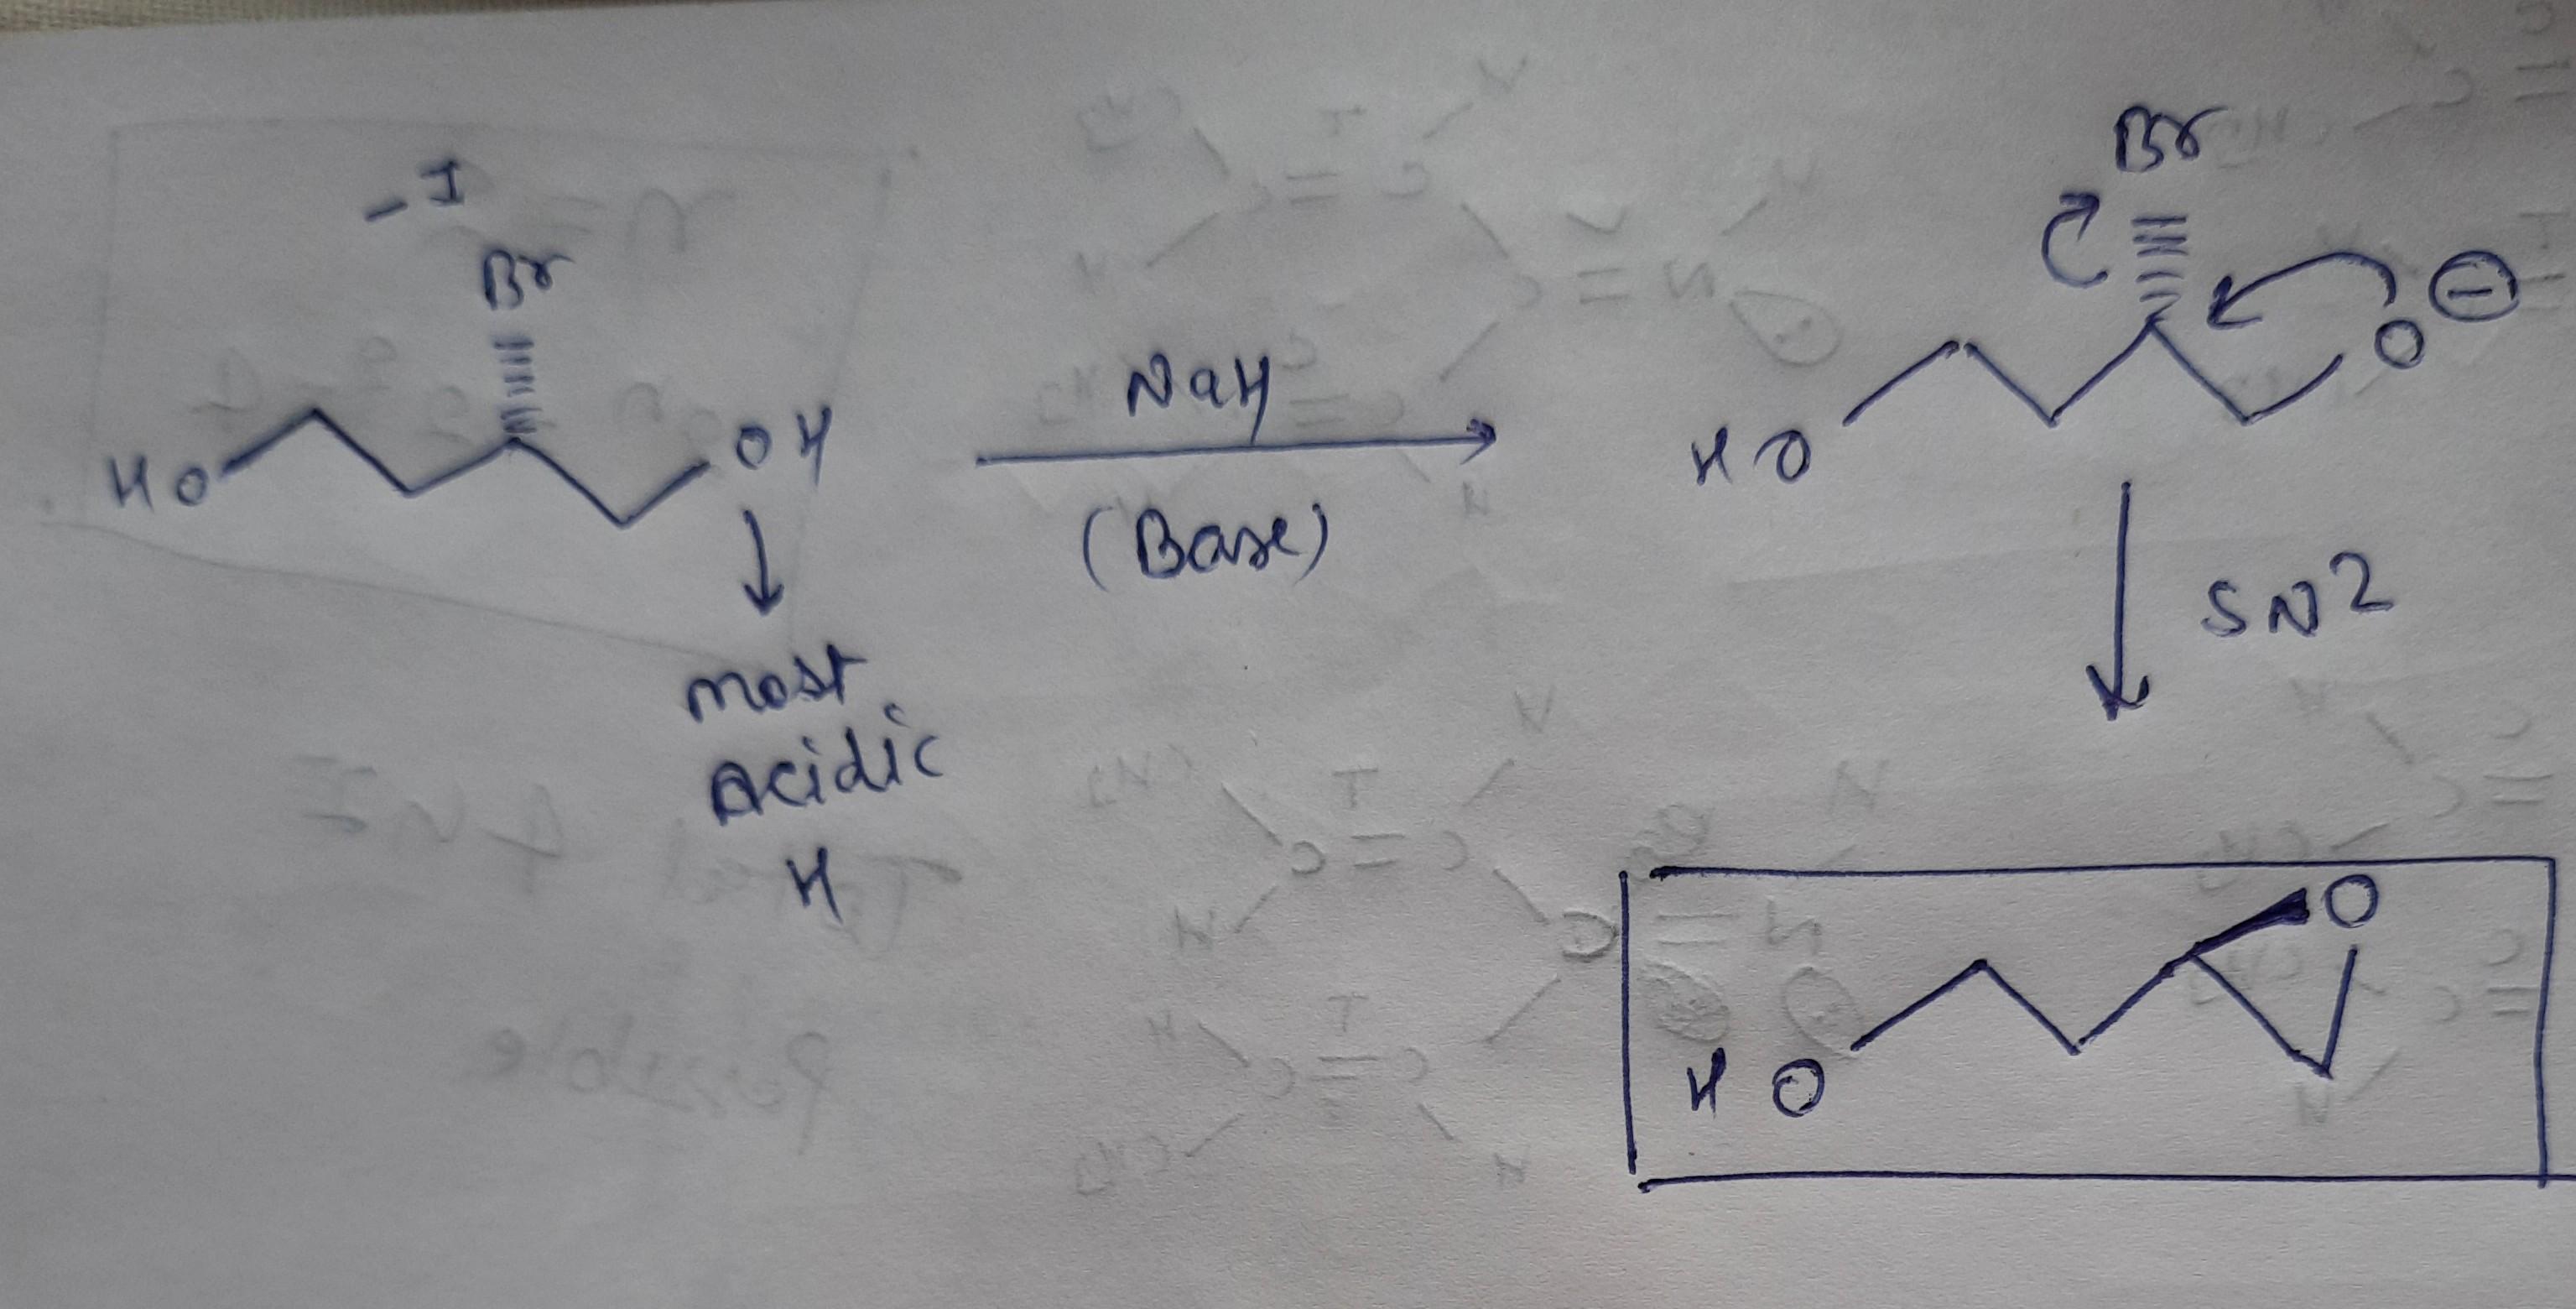 -I
Br
HO
OH
most
acidic
H
NaH
(Base)
Br
HO
O
⊖
SN2
HO
O